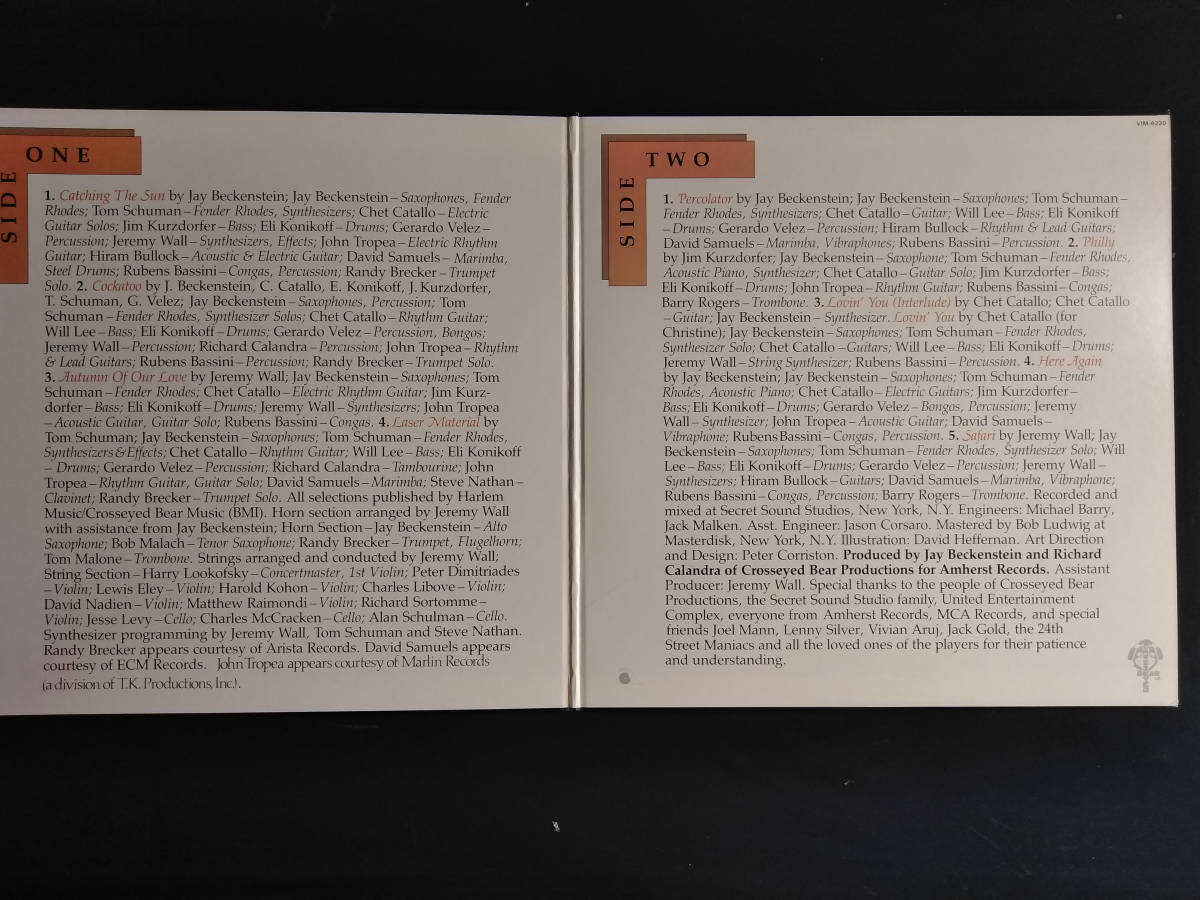 SIDE ONE
1. Catching The Sun by Jay Beckenstein; Jay Beckenstein–Saxophones, Fender
Rhodes; Tom Schuman–Fender Rhodes, Synthesizers; Chet Catallo–Electric
Guitar Solos; Jim Kurzdorfer–Bass; Eli Konikoff–Drums; Gerardo Velez–
Percussion; Jeremy Wall–Synthesizers, Effects; John Tropea–Electric Rhythm
Guitar; Hiram Bullock–Acoustic & Electric Guitar; David Samuels–Marimba,
Steel Drums; Rubens Bassini–Congas, Percussion; Randy Brecker–Trumpet
Solo. 2. Cockatoo by J. Beckenstein, C. Catallo, E. Konikoff, J. Kurzdorfer,
T. Schuman, G. Velez; Jay Beckenstein–Saxophones, Percussion; Tom
Schuman–Fender Rhodes, Synthesizer Solos; Chet Catallo–Rhythm Guitar;
Will Lee–Bass; Eli Konikoff–Drums; Gerardo Velez–Percussion, Bongos;
Jeremy Wall–Percussion; Richard Calandra–Percussion; John Tropea–Rhythm
& Lead Guitars; Rubens Bassini–Percussion; Randy Brecker–Trumpet Solo.
3. Autumn Of Our Love by Jeremy Wall; Jay Beckenstein–Saxophones; Tom
Schuman–Fender Rhodes; Chet Catallo–Electric Rhythm Guitar; Jim Kurz-
dorfer–Bass; Eli Konikoff–Drums; Jeremy Wall–Synthesizers; John Tropea
–Acoustic Guitar, Guitar Solo; Rubens Bassini–Congas. 4. Laser Material by
Tom Schuman; Jay Beckenstein–Saxophones; Tom Schuman–Fender Rhodes,
Synthesizers & Effects; Chet Catallo–Rhythm Guitar; Will Lee–Bass; Eli Konikoff
–Drums; Gerardo Velez–Percussion; Richard Calandra–Tambourine; John
Tropea–Rhythm Guitar, Guitar Solo; David Samuels–Marimba; Steve Nathan–
Clavinet; Randy Brecker–Trumpet Solo. All selections published by Harlem
Music/Crosseyed Bear Music (BMI). Horn section arranged by Jeremy Wall
with assistance from Jay Beckenstein; Horn Section–Jay Beckenstein–Alto
Saxophone; Bob Malach–Tenor Saxophone; Randy Brecker–Trumpet, Flugelhorn;
Tom Malone–Trombone. Strings arranged and conducted by Jeremy Wall;
String Section–Harry Lookofsky–Concertmaster, 1st Violin; Peter Dimitriades
–Violin; Lewis Eley–Violin; Harold Kohon–Violin; Charles Libove–Violin;
David Nadien–Violin; Matthew Raimondi–Violin; Richard Sortomme–
Violin; Jesse Levy–Cello; Charles McCracken–Cello; Alan Schulman–Cello.
Synthesizer programming by Jeremy Wall, Tom Schuman and Steve Nathan.
Randy Brecker appears courtesy of Arista Records. David Samuels appears
courtesy of ECM Records. John Tropea appears courtesy of Marlin Records
(a division of T.K. Productions, Inc.).
VIM-6220
SIDE TWO
1. Percolator by Jay Beckenstein; Jay Beckenstein–Saxophones; Tom Schuman–
Fender Rhodes, Synthesizers; Chet Catallo–Guitar; Will Lee–Bass; Eli Konikoff
–Drums; Gerardo Velez–Percussion; Hiram Bullock–Rhythm & Lead Guitars;
David Samuels–Marimba, Vibraphones; Rubens Bassini–Percussion. 2. Philly
by Jim Kurzdorfer; Jay Beckenstein–Saxophone; Tom Schuman–Fender Rhodes,
Acoustic Piano, Synthesizer; Chet Catallo–Guitar Solo; Jim Kurzdorfer–Bass;
Eli Konikoff–Drums; John Tropea–Rhythm Guitar; Rubens Bassini–Congas;
Barry Rogers–Trombone. 3. Lovin' You (Interlude) by Chet Catallo; Chet Catallo
–Guitar; Jay Beckenstein–Synthesizer. Lovin' You by Chet Catallo (for
Christine); Jay Beckenstein–Saxophones; Tom Schuman–Fender Rhodes,
Synthesizer Solo; Chet Catallo–Guitars; Will Lee–Bass; Eli Konikoff–Drums;
Jeremy Wall–String Synthesizer; Rubens Bassini–Percussion. 4. Here Again
by Jay Beckenstein; Jay Beckenstein–Saxophones; Tom Schuman–Fender
Rhodes, Acoustic Piano; Chet Catallo–Electric Guitars; Jim Kurzdorfer–
Bass; Eli Konikoff–Drums; Gerardo Velez–Bongos, Percussion; Jeremy
Wall–Synthesizer; John Tropea–Acoustic Guitar; David Samuels–
Vibraphone; Rubens Bassini–Congas, Percussion. 5. Safari by Jeremy Wall; Jay
Beckenstein–Saxophones; Tom Schuman–Fender Rhodes, Synthesizer Solo; Will
Lee–Bass; Eli Konikoff–Drums; Gerardo Velez–Percussion; Jeremy Wall–
Synthesizers; Hiram Bullock–Guitars; David Samuels–Marimba, Vibraphone;
Rubens Bassini–Congas, Percussion; Barry Rogers–Trombone. Recorded and
mixed at Secret Sound Studios, New York, N.Y. Engineers: Michael Barry,
Jack Malken. Asst. Engineer: Jason Corsaro. Mastered by Bob Ludwig at
Masterdisk, New York, N.Y. Illustration: David Heffernan. Art Direction
and Design: Peter Corriston. Produced by Jay Beckenstein and Richard
Calandra of Crosseyed Bear Productions for Amherst Records. Assistant
Producer: Jeremy Wall. Special thanks to the people of Crosseyed Bear
Productions, the Secret Sound Studio family, United Entertainment
Complex, everyone from Amherst Records, MCA Records, and special
friends Joel Mann, Lenny Silver, Vivian Aruj, Jack Gold, the 24th
Street Maniacs and all the loved ones of the players for their patience
and understanding.